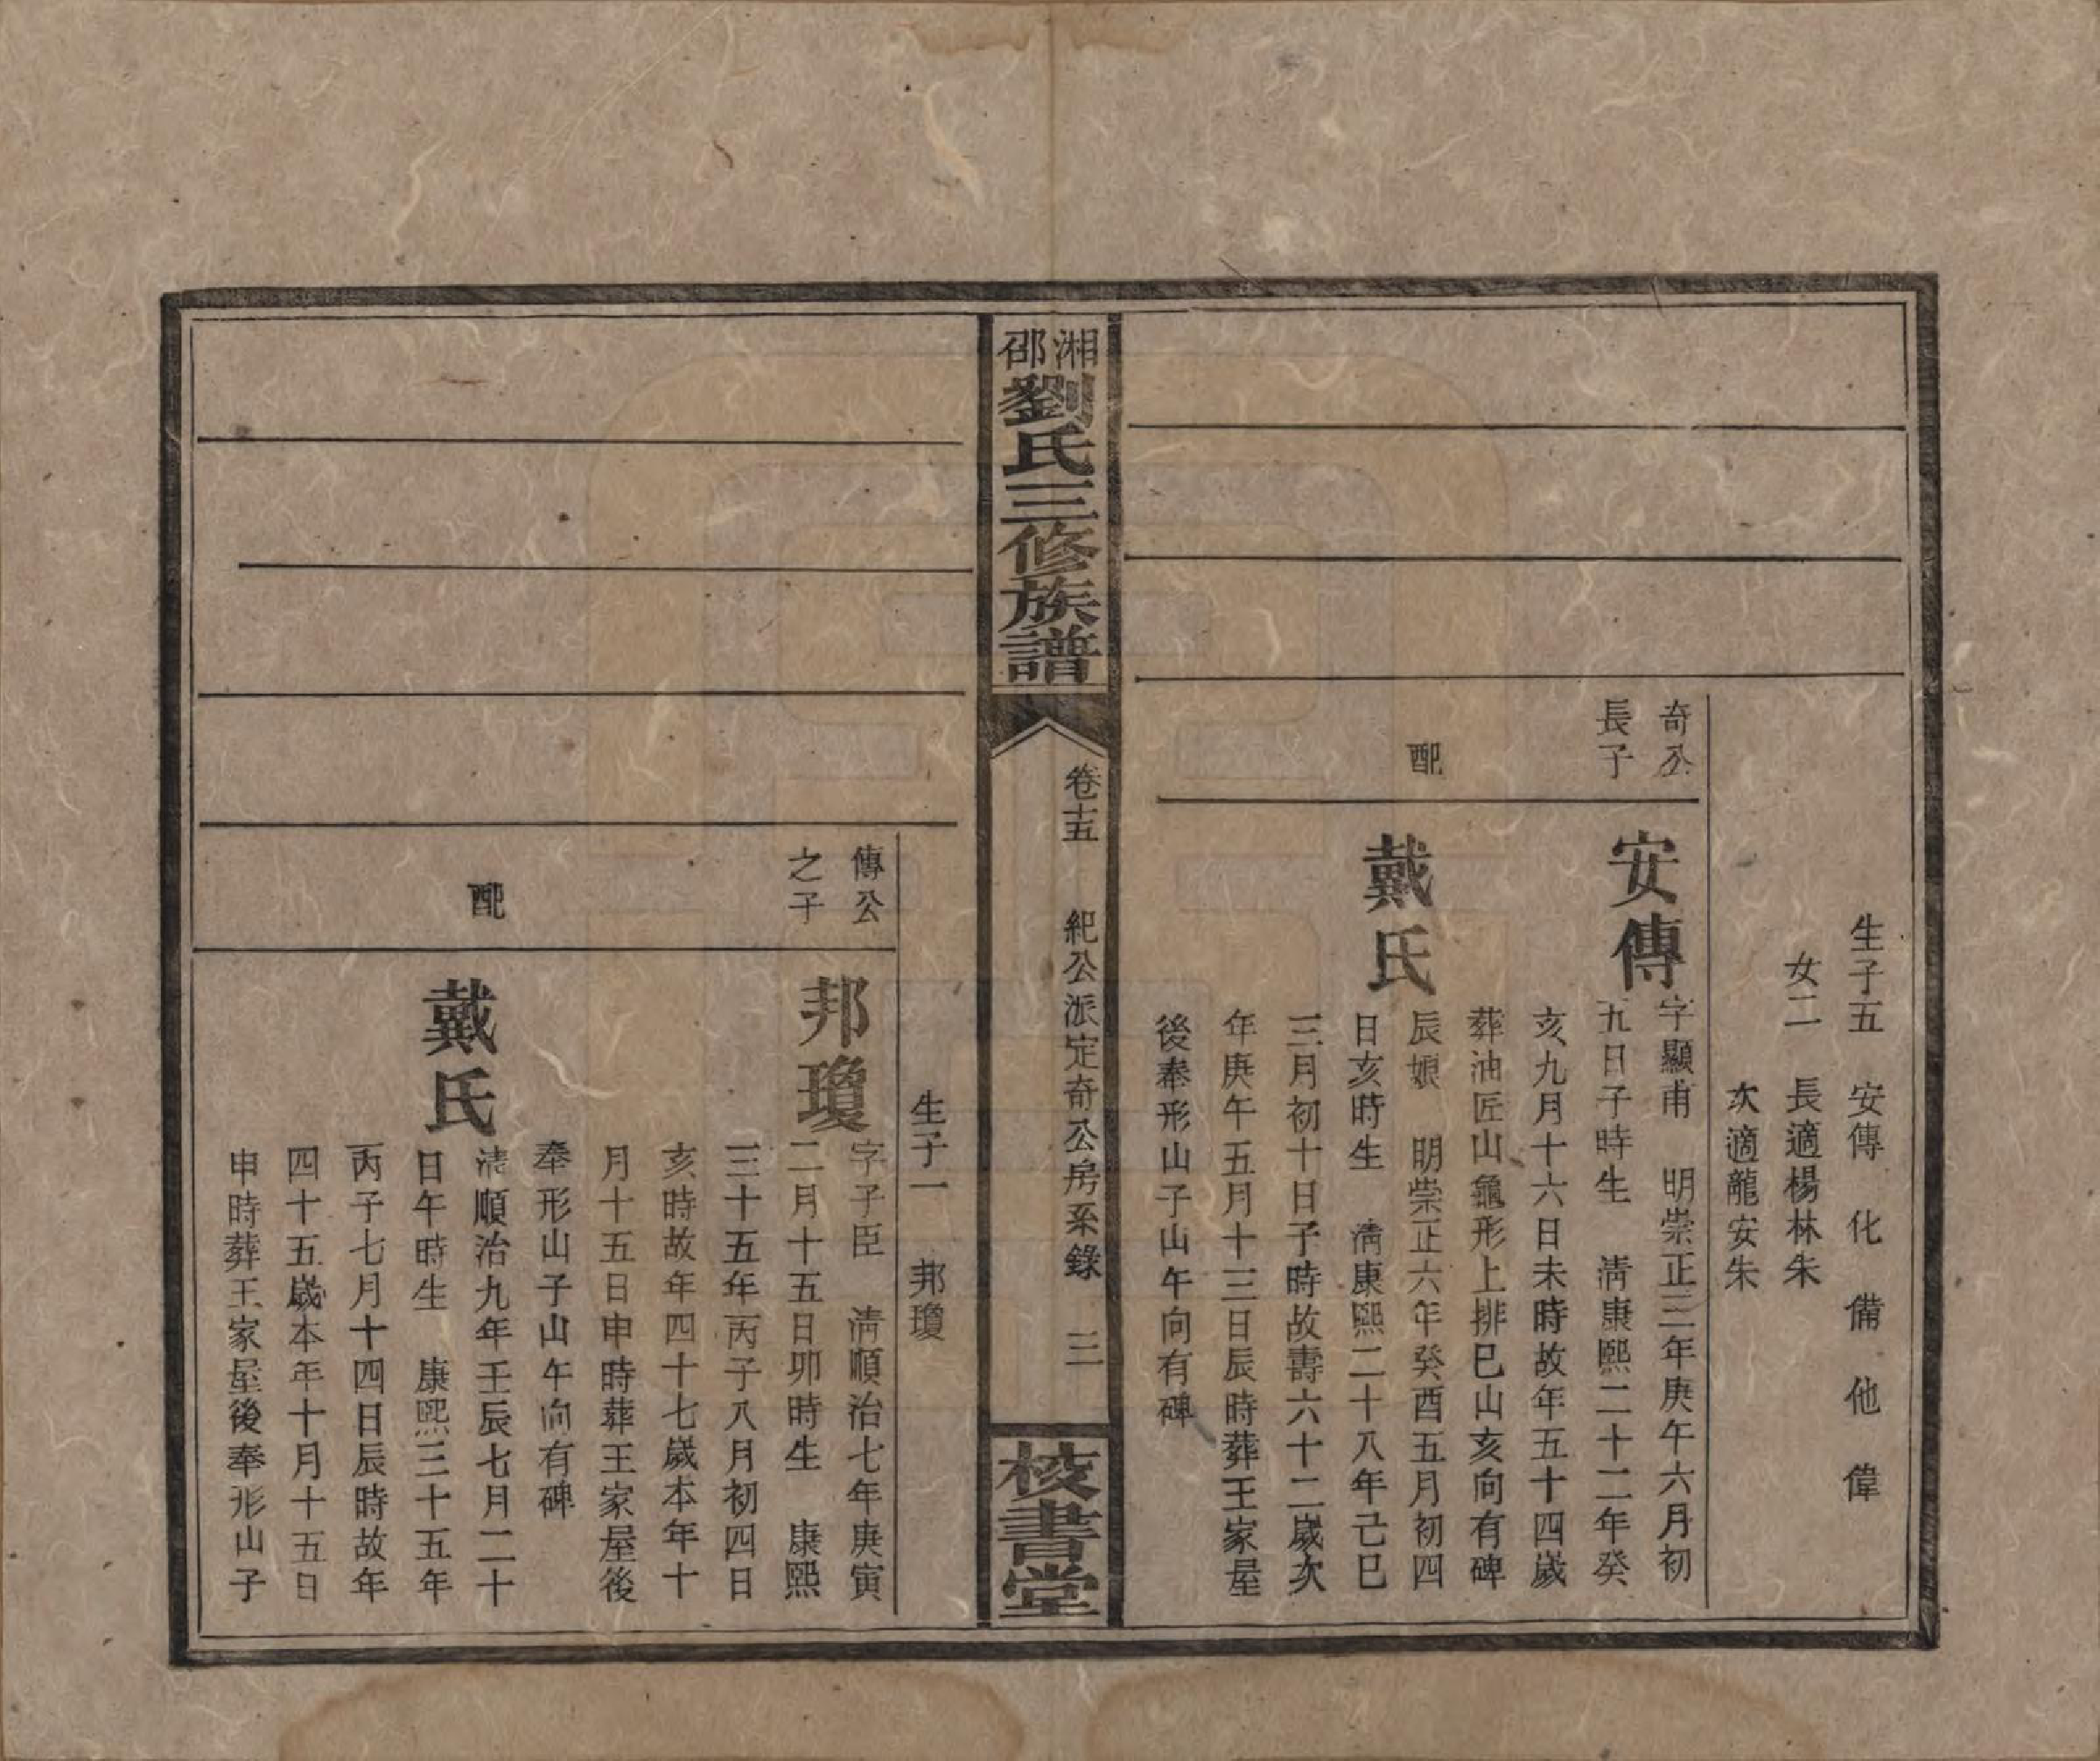 生子五　安傳　化　備　他　偉
女二　長適楊林朱
次適龍安朱
奇公
長子
安傳
字顯甫　明崇正三年庚午六月初
九日子時生　淸康熙二十二年癸
亥九月十六日未時故年五十四歲
葬油匠山龜形上排巳山亥向有碑
配
戴氏
辰娘　明崇正六年癸酉五月初四
日亥時生　淸康熙二十八年己巳
三月初十日子時故壽六十二歲次
年庚午五月十三日辰時葬王家屋
後奉形山子山午向有碑
湘邵
劉氏三修族譜
卷十五　紀公派定奇公房系錄　三
校書堂
生子一　邦瓊
傳公
之子
邦瓊
字子臣　淸順治七年庚寅
二月十五日卯時生　康熙
三十五年丙子八月初四日
亥時故年四十七歲本年十
月十五日申時葬王家屋後
奉形山子山午向有碑
配
戴氏
淸順治九年壬辰七月二十
日午時生　康熙三十五年
丙子七月十四日辰時故年
四十五歲本年十月十五日
申時葬王家屋後奉形山子